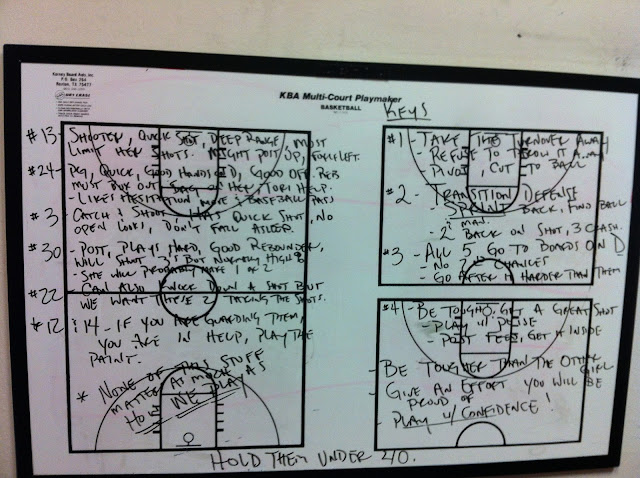 Korney Board Aids, Inc.
P.O. Box 264
Roxton, TX 75477
KBA Multi-Court Playmaker
BASKETBALL
#13- SHOOTER, QUICK SHOT, DEEP RANGE, MUST
LIMIT HER SHOTS. MIGHT POST UP, FORCE LEFT.
#24- PG, QUICK, GOOD HANDS ON D, GOOD OFF. REB
MUST BOX OUT. ON HER, TORI HELP.
- LIKES HESITATION MOVE & BASEBALL PASS
#3- CATCH & SHOOT, HAS QUICK SHOT, NO
OPEN LOOKS, DON'T FALL ASLEEP.
#30 - POST, PLAYS HARD, GOOD REBOUNDER,
WILL SHOOT 3'S BUT NORMALLY HIGH
- SHE WILL PROBABLY MAKE 1 OF 2
#22 - CAN ALSO KNOCK DOWN A SHOT BUT
WE WANT THESE 2 TAKING THE SHOTS.
#12 & 14 - IF YOU ARE GUARDING THEM,
YOU ARE IN HELP, PLAY THE
PAINT.
* NONE OF THIS STUFF
MATTERS AS MUCH AS
HOW WE PLAY
KEYS
#1 - TAKE THE TURNOVER AWAY
- REFUSE TO THROW IT AWAY
- PIVOT, CUT TO BALL
#2 - TRANSITION DEFENSE
- SPRINT BACK, FIND BALL
& MAN.
- 2 BACK ON SHOT, 3 CRASH.
#3 - ALL 5 GO TO BOARDS ON D
- NO 2nd CHANCES
- GO AFTER IT HARDER THAN THEM
#4 - BE TOUGH, GET A GREAT SHOT
- PLAY w/ POISE
- POST FEED, GET IT INSIDE
- BE TOUGHER THAN THE OTHER GIRL
- GIVE AN EFFORT YOU WILL BE
PROUD OF
- PLAY w/ CONFIDENCE!
HOLD THEM UNDER 40.